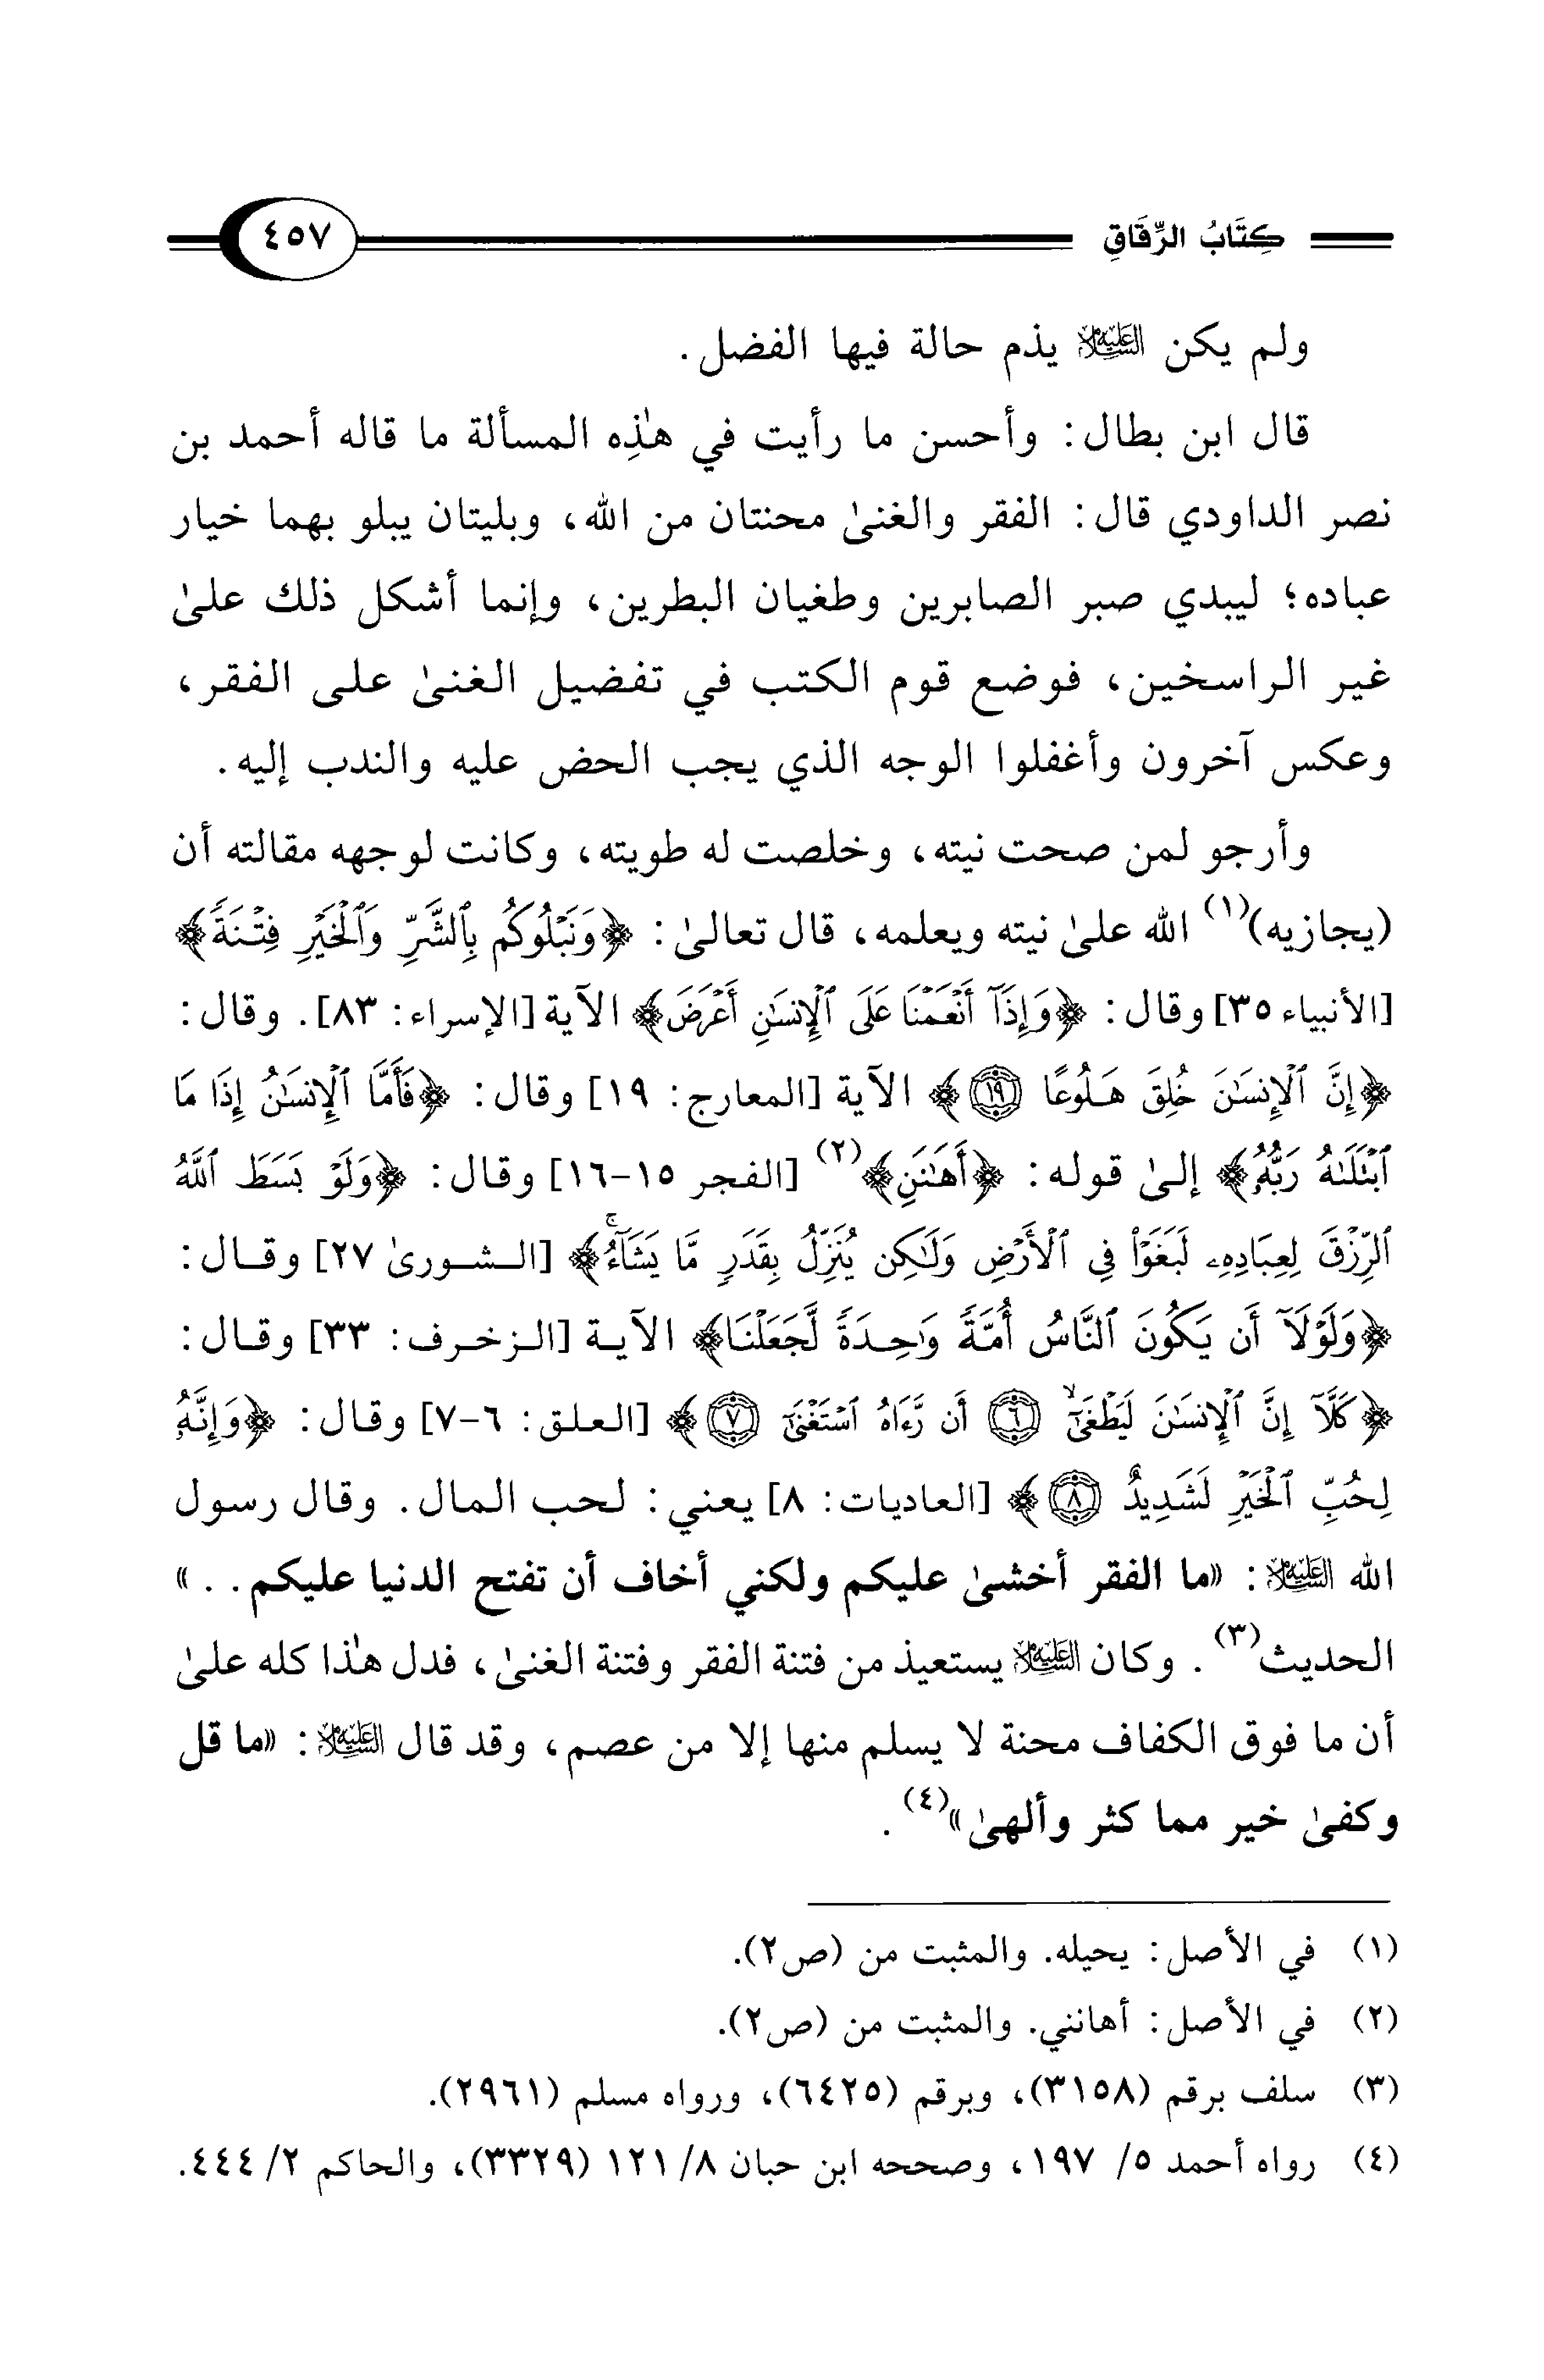 كِتَابُ الرِّقَاقِ ٤٥٧
ولم يكن عليه السلام يذم حالة فيها الفضل.
قال ابن بطال: وأحسن ما رأيت في هذِه المسألة ما قاله أحمد بن
نصر الداودي قال: الفقر والغنىٰ محنتان من الله، وبليتان يبلو بهما خيار
عباده؛ ليبدي صبر الصابرين وطغيان البطرين، وإنما أشكل ذلك علىٰ
غير الراسخين، فوضع قوم الكتب في تفضيل الغنىٰ على الفقر،
وعكس آخرون وأغفلوا الوجه الذي يجب الحض عليه والندب إليه.
وأرجو لمن صحت نيته، وخلصت له طويته، وكانت لوجهه مقالته أن
(يجازيه)(١) الله علىٰ نيته ويعلمه، قال تعالىٰ: ﴿وَنَبْلُوكُم بِٱلشَّرِّ وَٱلْخَيْرِ فِتْنَةً﴾
[الأنبياء ٣٥] وقال: ﴿وَإِذَآ أَنْعَمْنَا عَلَى ٱلْإِنسَٰنِ أَعْرَضَ﴾ الآية [الإسراء: ٨٣]. وقال:
﴿إِنَّ ٱلْإِنسَٰنَ خُلِقَ هَلُوعًا ١٩﴾ الآية [المعارج: ١٩] وقال: ﴿فَأَمَّا ٱلْإِنسَٰنُ إِذَا مَا
ٱبْتَلَىٰهُ رَبُّهُۥ﴾ إلىٰ قوله: ﴿أَهَٰنَنِ﴾(٢) [الفجر ١٥-١٦] وقال: ﴿وَلَوْ بَسَطَ ٱللَّهُ
ٱلرِّزْقَ لِعِبَادِهِۦ لَبَغَوْا۟ فِى ٱلْأَرْضِ وَلَٰكِن يُنَزِّلُ بِقَدَرٍ مَّا يَشَآءُۚ﴾ [الشورىٰ ٢٧] وقال:
﴿وَلَوْلَآ أَن يَكُونَ ٱلنَّاسُ أُمَّةً وَٰحِدَةً لَّجَعَلْنَا﴾ الآية [الزخرف: ٣٣] وقال:
﴿كَلَّآ إِنَّ ٱلْإِنسَٰنَ لَيَطْغَىٰٓۙ ٦ أَن رَّءَاهُ ٱسْتَغْنَىٰٓ ٧﴾ [العلق: ٦-٧] وقال: ﴿وَإِنَّهُۥ
لِحُبِّ ٱلْخَيْرِ لَشَدِيدٌ ٨﴾ [العاديات: ٨] يعني: لحب المال. وقال رسول
الله عليه السلام: «ما الفقر أخشىٰ عليكم ولكني أخاف أن تفتح الدنيا عليكم..»
الحديث(٣). وكان عليه السلام يستعيذ من فتنة الفقر وفتنة الغنىٰ، فدل هٰذا كله علىٰ
أن ما فوق الكفاف محنة لا يسلم منها إلا من عصم، وقد قال عليه السلام: «ما قل
وكفىٰ خير مما كثر وألهىٰ»(٤).
(١) في الأصل: يحيله. والمثبت من (ص٢).
(٢) في الأصل: أهانني. والمثبت من (ص٢).
(٣) سلف برقم (٣١٥٨)، وبرقم (٦٤٢٥)، ورواه مسلم (٢٩٦١).
(٤) رواه أحمد ٥/ ١٩٧، وصححه ابن حبان ٨/ ١٢١ (٣٣٢٩)، والحاكم ٢/ ٤٤٤.